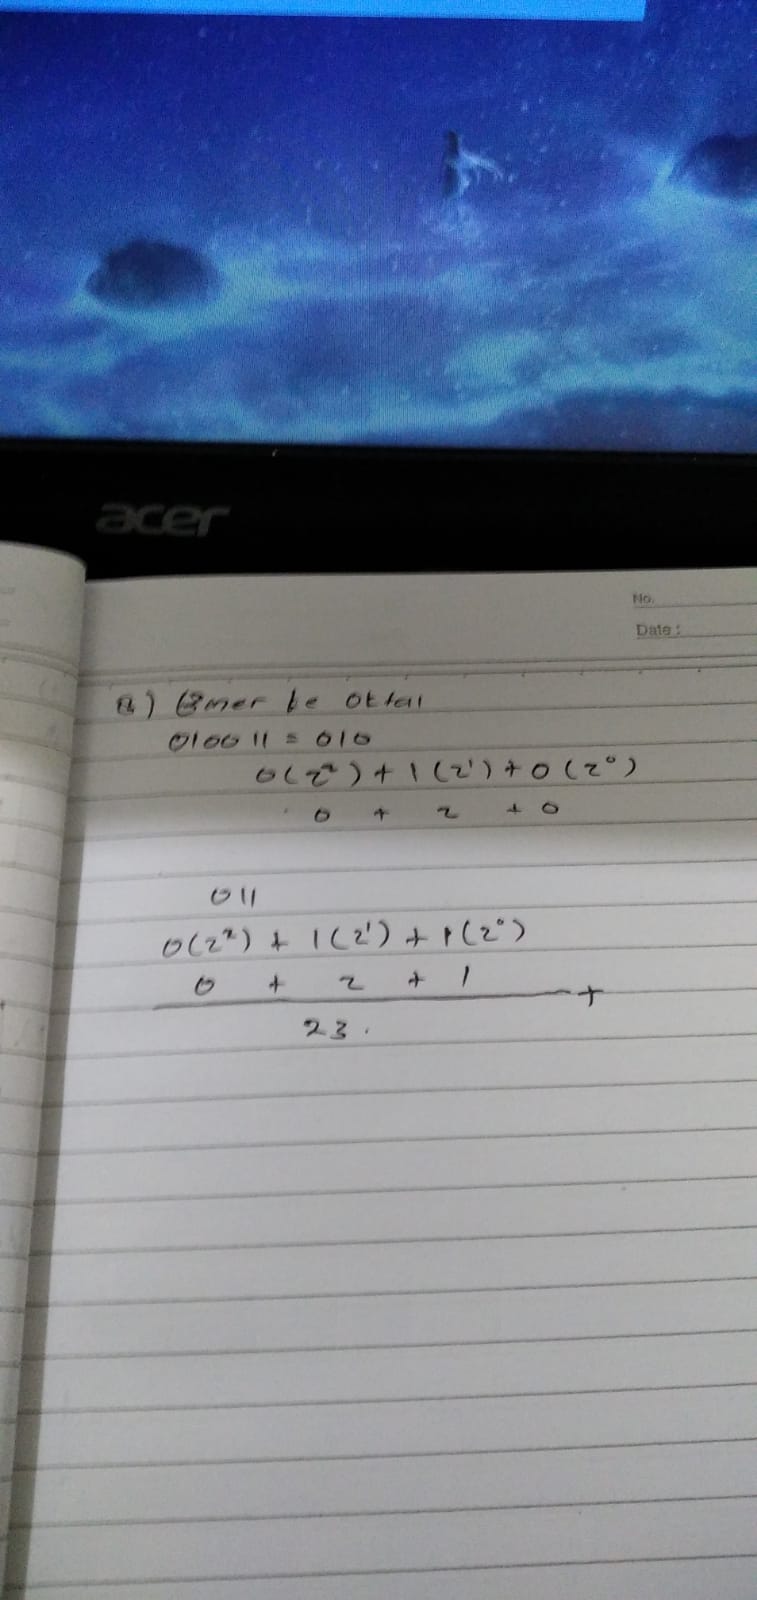 acer
No.
Date :
B) Biner ke Oktal
010011 = 010
0(2²) + 1(2¹) + 0(2⁰)
0 + 2 + 0
011
0(2²) + 1(2¹) + 1(2⁰)
0 + 2 + 1
+
23.